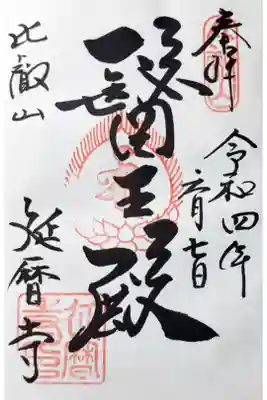 奉拝
令和四年
六月七日
醫王殿
比叡山
延暦寺